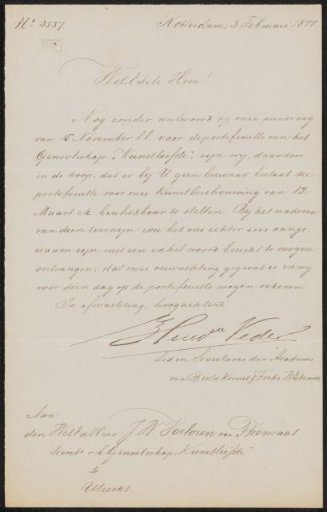 No. 3537 Rotterdam, 3 Februari 1877
WelEdele Heer!
Nog zonder antwoord op onze aanvraag
van 15 November ll voor de portefeuille van het
Genootschap "Kunstliefde", zijn wij daardoor
in de hoop, dat er bij U geen bezwaar bestaat die
portefeuille voor onze Kunstbeschouwing van 12
Maart e.k. beschikbaar te stellen. Bij het naderen
van dien termijn zou het ons echter zeer aange-
naam zijn met een enkel woord berigt te mogen
ontvangen, dat onze verwachting gegrond is en wij
voor dien dag op de portefeuille mogen rekenen.
In afwachting, hoogachtend
Veder
Lid en Secretaris der Academie
van Beeld. Kunst & Techn. Wetensch.
Aan
den WelEd. Heer J. W. van
Secret. v/h Genootschap "Kunstliefde"
te
Utrecht.